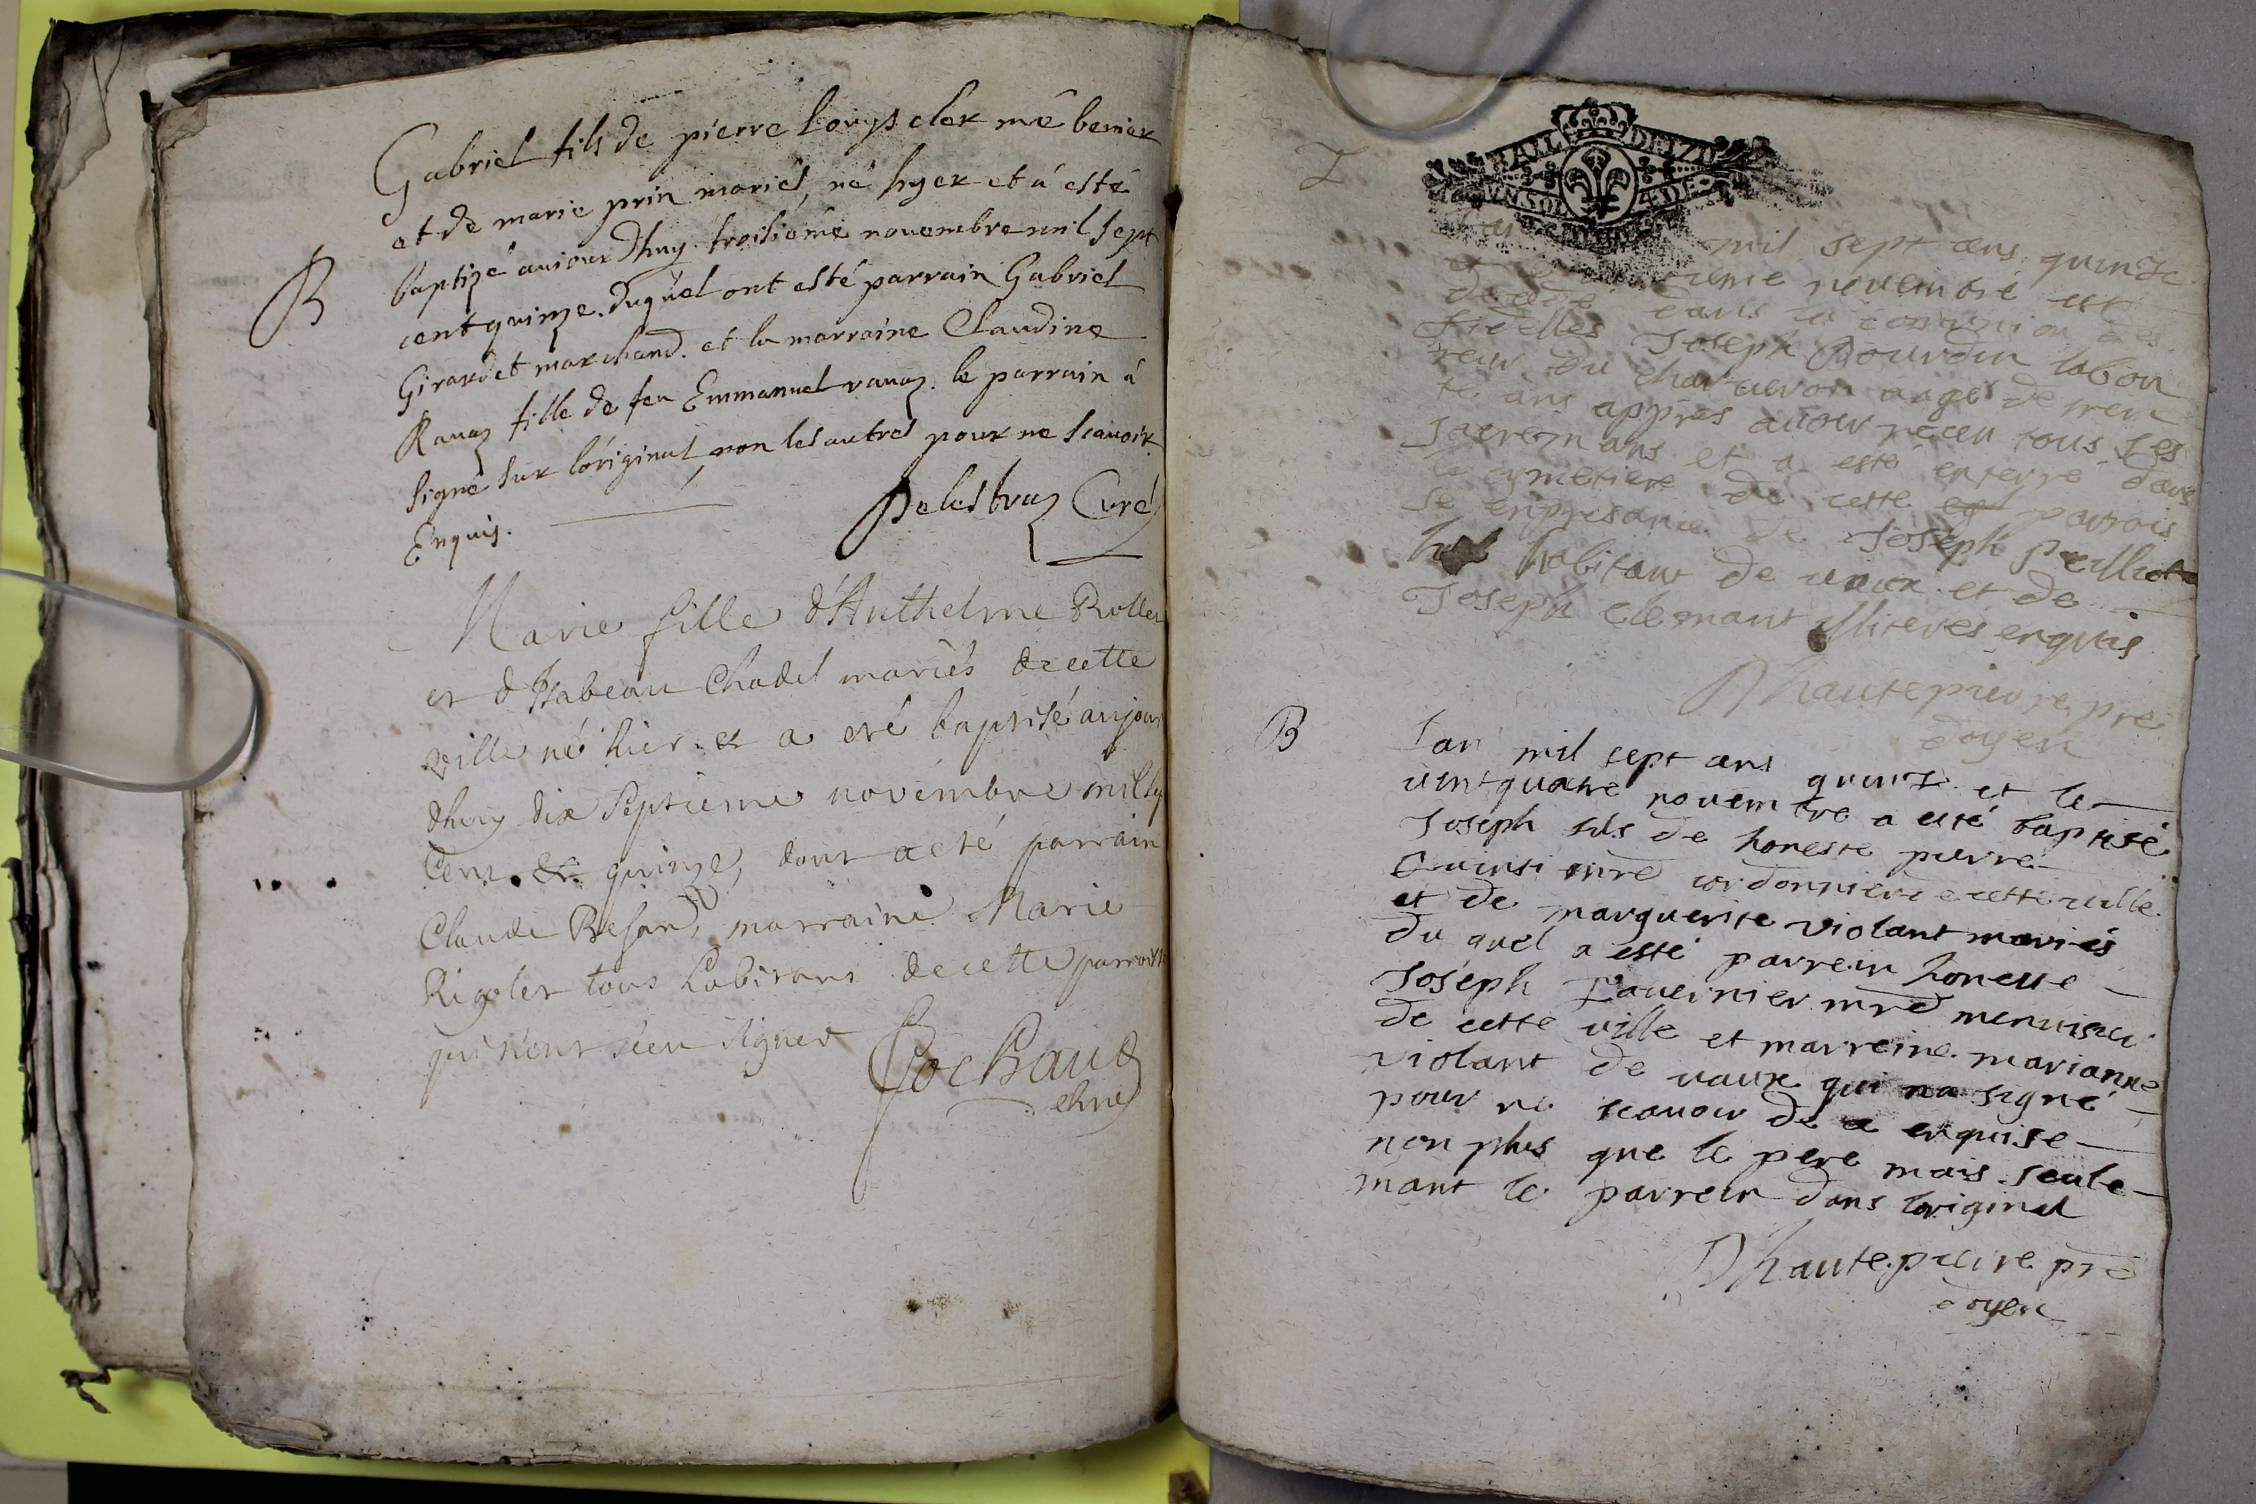 Gabriel fils de pierre Louys cler mē benier
et de marie prin mariés, né hyer et á esté
B
baptizé auiourdhuy troisiéme nouembre mil sept
cent quinze. duquel ont esté parrain Gabriel
Girardet marchand. et la marraine Claudine
Rauaz fille de feu Emmanuel rauaz. le parrain á
signé sur l'original, non les autres pour ne scauoir.
Enquis.
Delestraz Curé
Marie fille d'Anthelme Rollet
et d'Isabeau Chadel mariés de cette
ville né hier et a eté baptisé aujour
dhuy dix septieme novembre mil
Cent & quinze, dont a eté parrain
Claude Besan, marraine Marie
Rigolet tous habitans de cette parroisse
qui n'ont sceu signer
Cochaud
L'an mil sept ans quinze
et le novembre est
decede dans la communion des
fidelles Joseph Bourdin labou
reur du charveron aagé de tren
te ans appres auoir receu tous ses
sacremans et a esté enterré dans
le cymetiere de cette parrois
se en presance de Joseph
habitant de vaux et de
Joseph clemant illiterés enquis
Dhautepierre pre
doyen
B
Lan mil sept ans quinze et le
vint quatre nouembre a esté baptisé
Joseph fils de honeste pierre
Quinsi mre cordonnier de cette ville
et de marguerite violant mariés
du quel a esté parrein honeste
Joseph Fauernier mre menuisier
de cette ville et marreine marianne
violant de vaux qui na signé
pour ne scauoir de ce enquise
non plus que le pere mais seule
mant le parrein dans loriginal
Dhautepierre pre
doyen